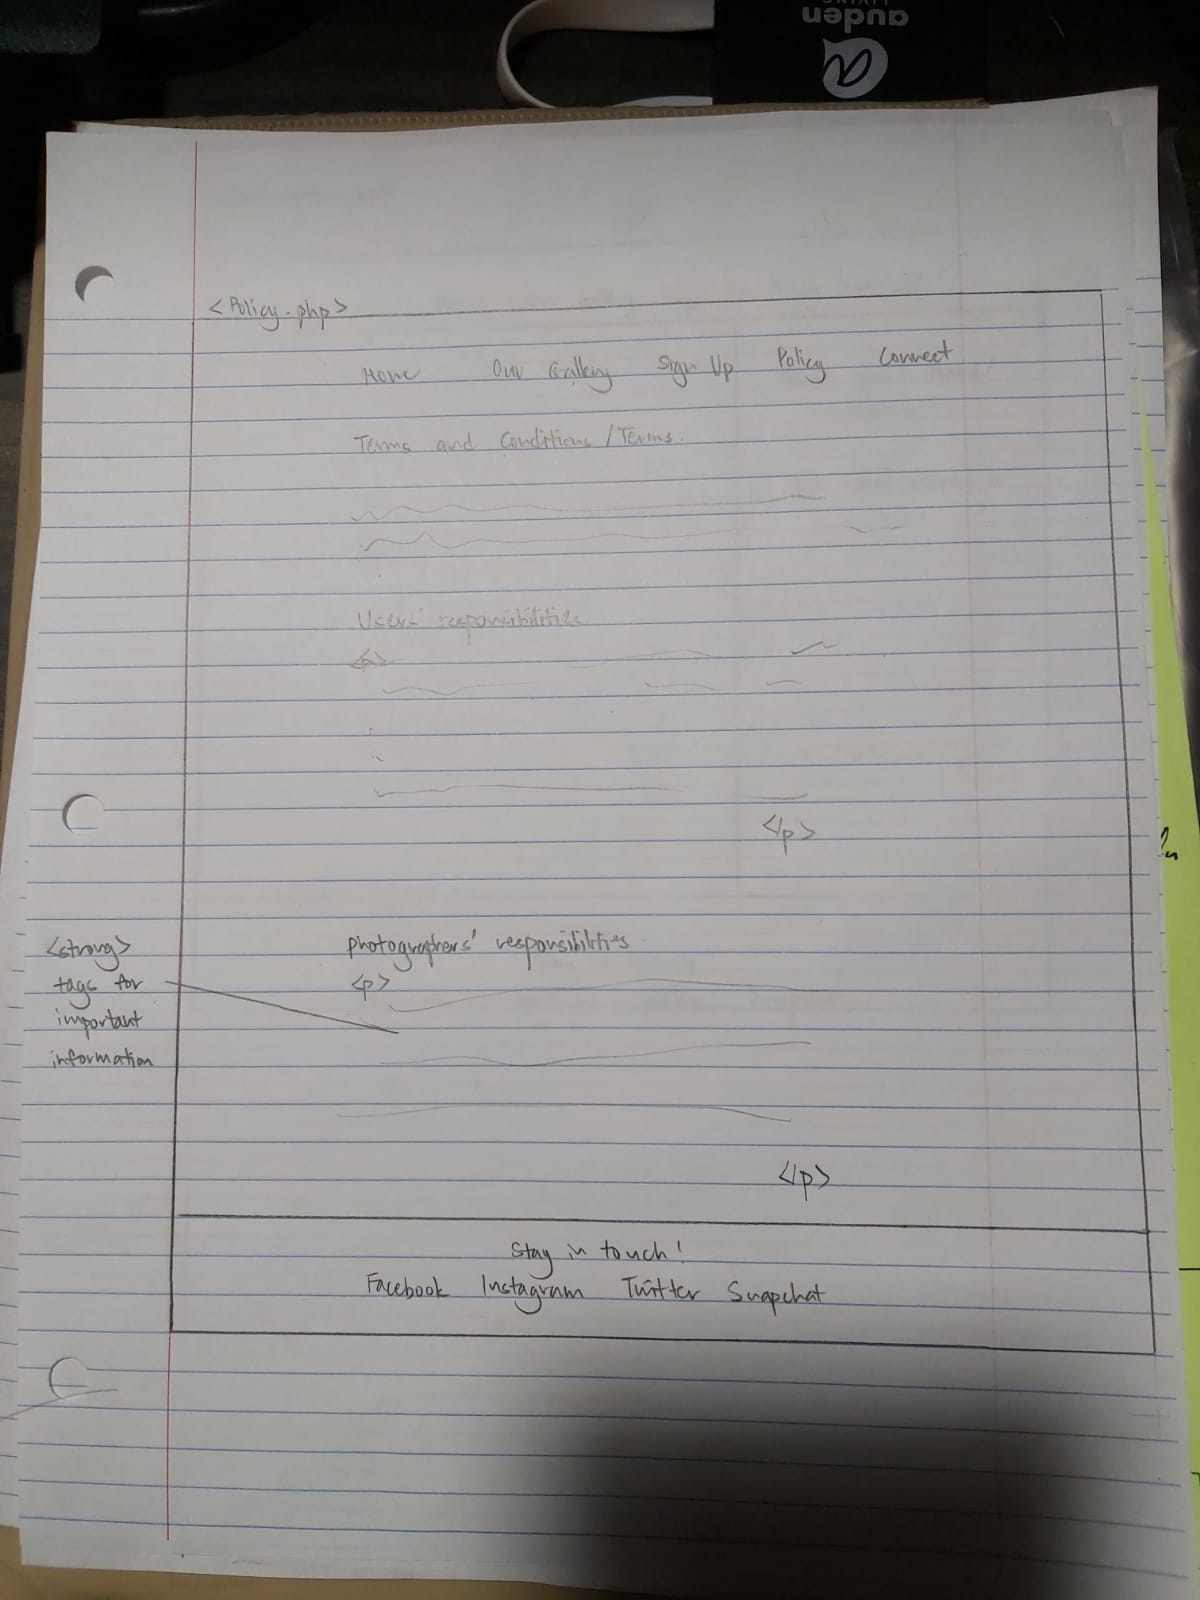 auden
LIVING
<Policy.php>
Home Our Gallery Sign Up Policy Connect
Terms and Conditions / Terms.
Users' responsibilities
<p>
</p>
<strong>
tags for
important
information
photographers' responsibilities
<p>
</p>
Stay in touch!
Facebook Instagram Twitter Snapchat